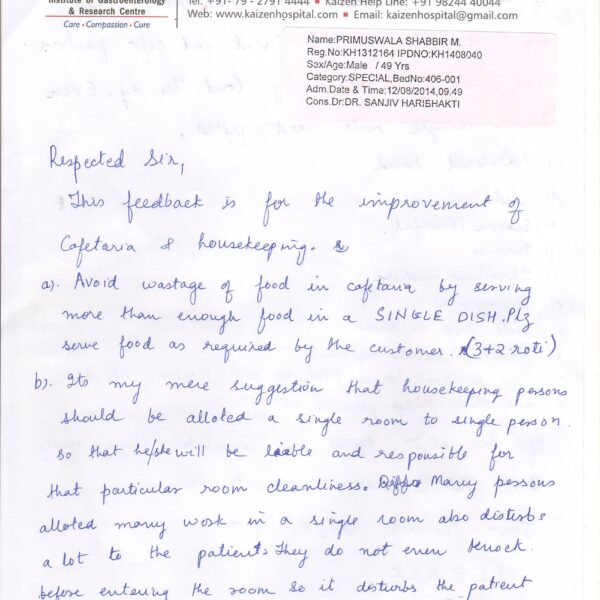 Institute of Gastroenterology
& Research Centre
Care - Compassion - Cure
Tel: +91- 79 - 2791 4444 • Kaizen Help Line: +91 98244 40044
Web: www.kaizenhospital.com • Email: kaizenhospital@gmail.com
Name:PRIMUSWALA SHABBIR M.
Reg.No:KH1312164 IPDNO:KH1408040
Sex/Age:Male / 49 Yrs
Category:SPECIAL,BedNo:406-001
Adm.Date & Time:12/08/2014,09.49
Cons.Dr:DR. SANJIV HARIBHAKTI
Respected Sir,
This feedback is for the improvement of
Cafetaria & housekeeping.
a). Avoid wastage of food in cafetaria by serving
more than enough food in a SINGLE DISH. Plz
serve food as required by the customer. (3+2 roti)
b). Its my mere suggestion that housekeeping persons
should be alloted a single room to single person.
so that he/she will be liable and responsible for
that particular room cleanliness. Many persons
alloted many work in a single room also disturbs
a lot to the patient. They do not even knock
before entering the room so it disturbs the patient